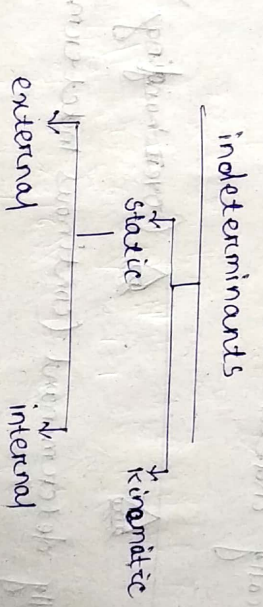 indeterminants
static kinamatic
external internal